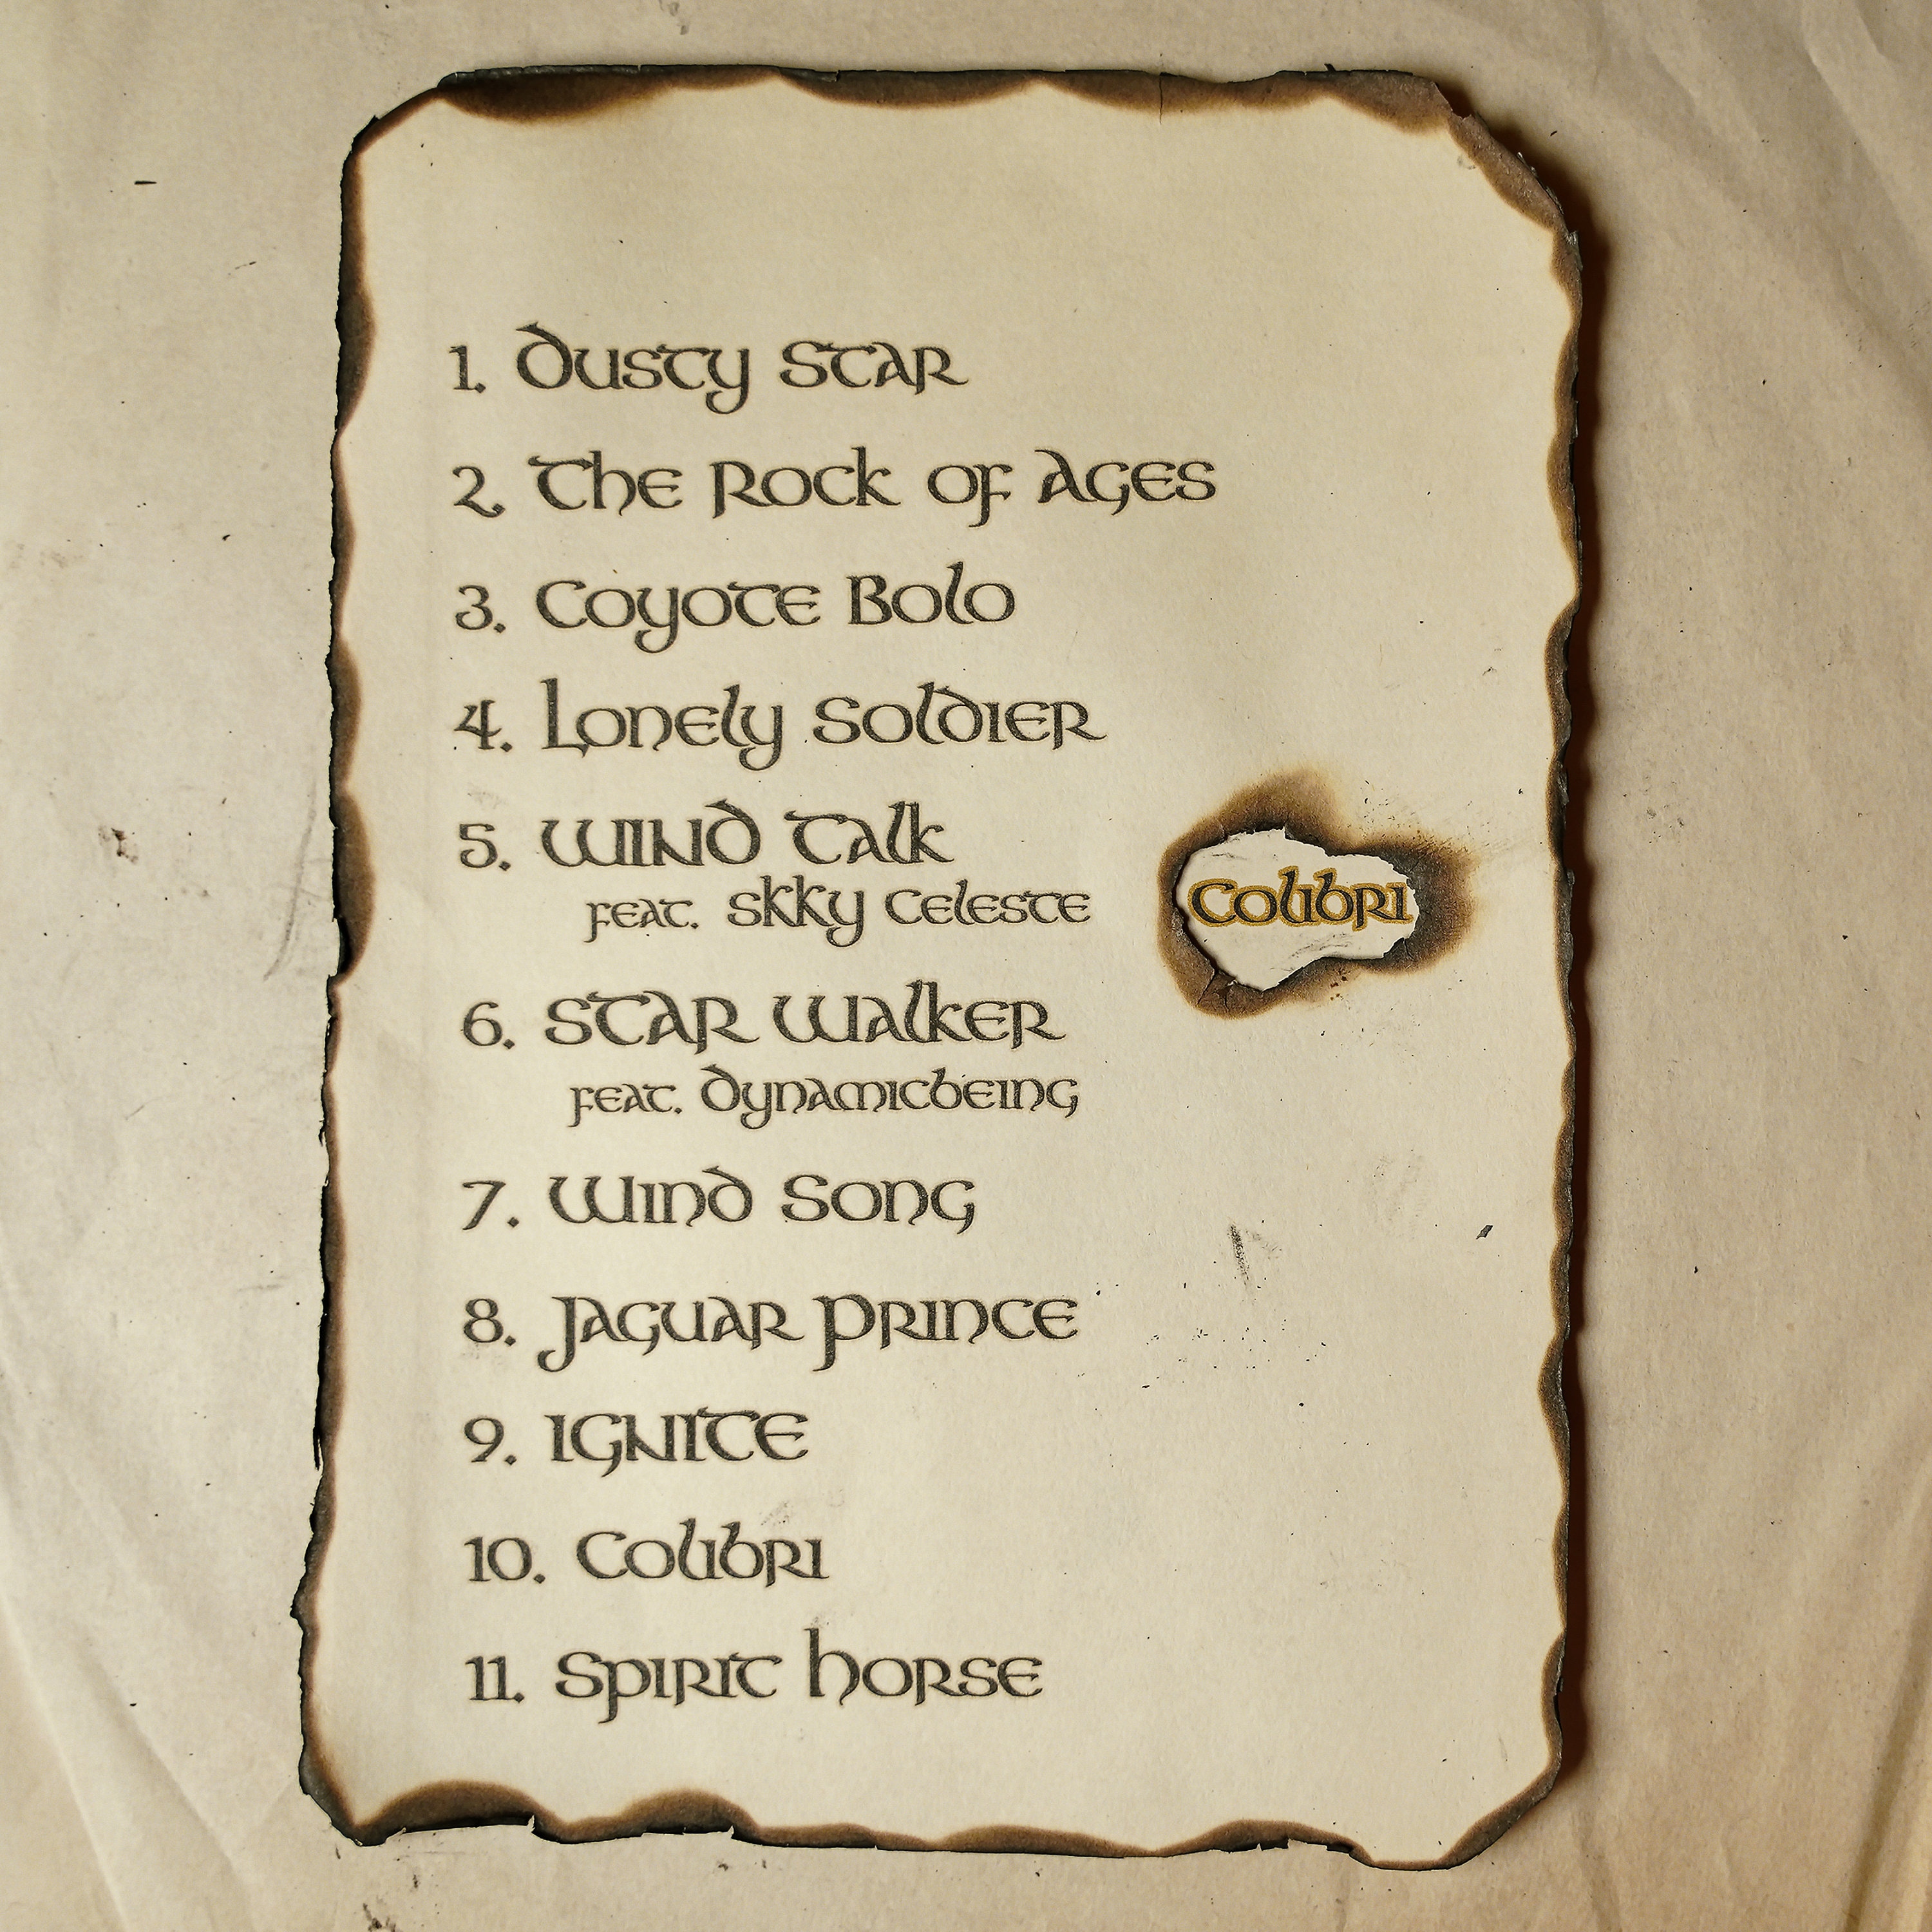 1. Dusty Star
2. The Rock of Ages
3. Coyote Bolo
4. Lonely Soldier
5. WIND Talk
feat. Skky Celeste
Colibri
6. STAR Walker
feat. Dynamicbeing
7. Wind Song
8. Jaguar Prince
9. IGNITE
10. Colibri
11. Spirit Horse